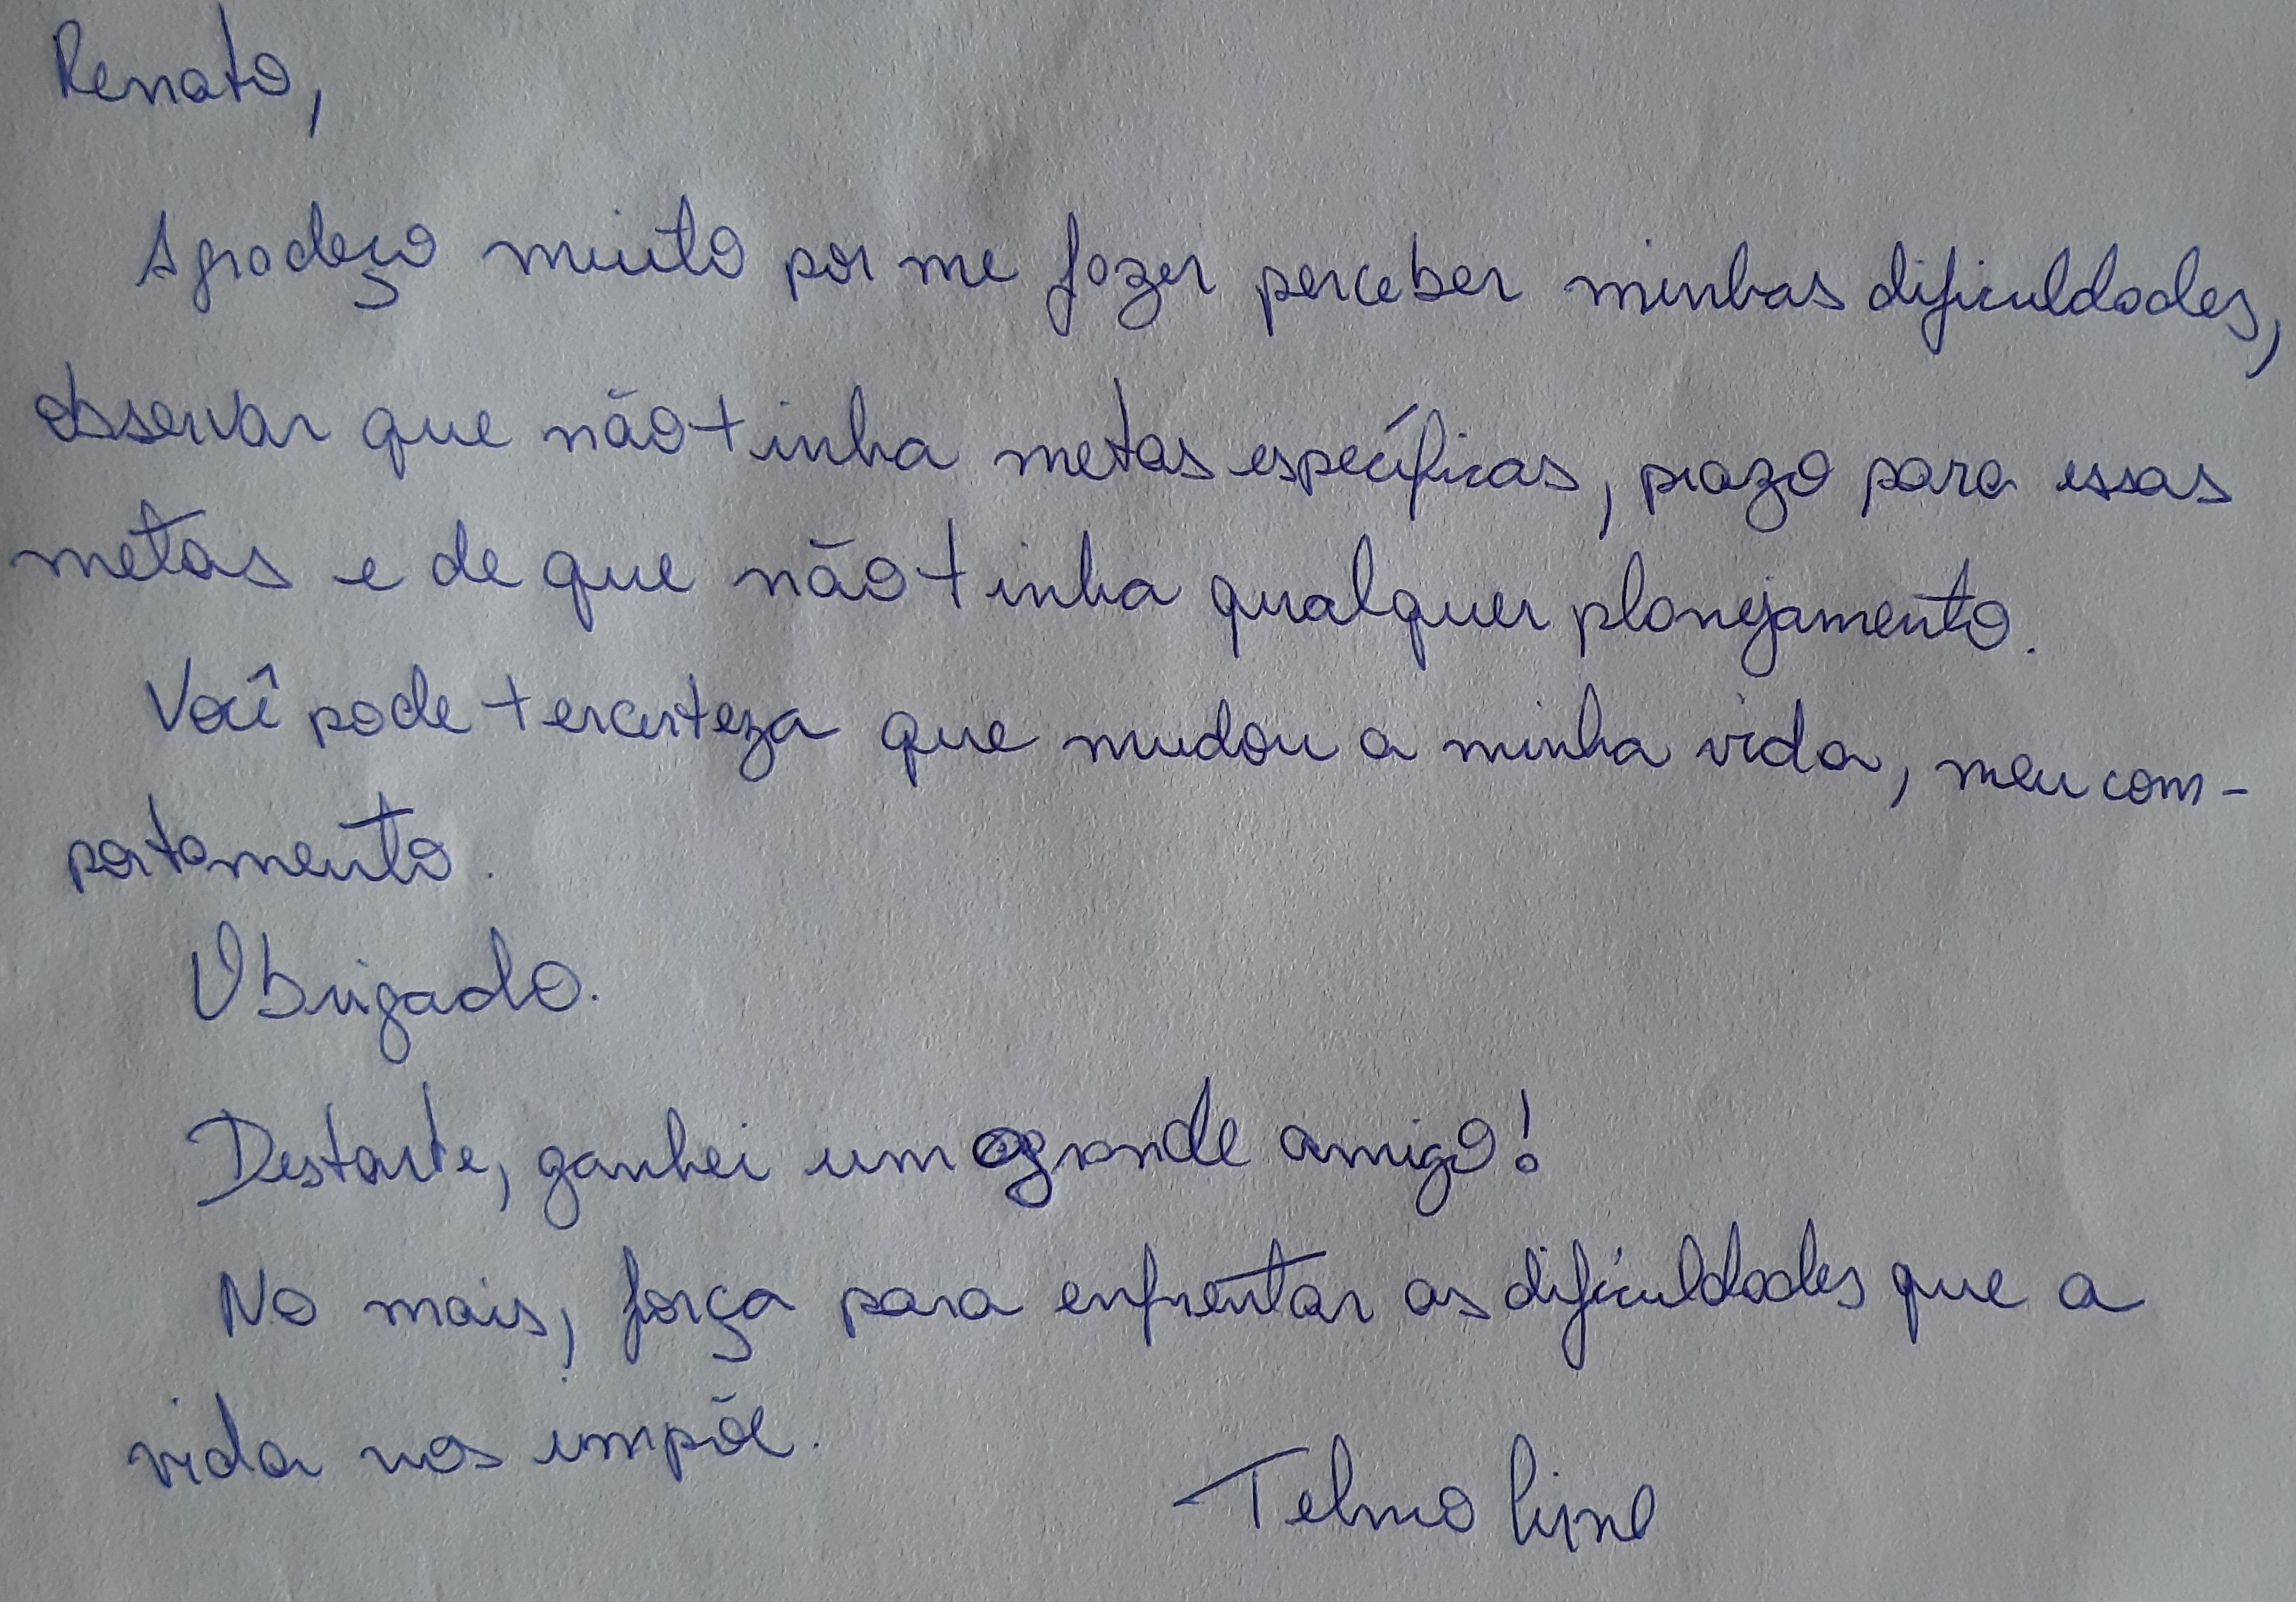 Renato,
Agradeço muito por me fazer perceber minhas dificuldades,
observar que não tinha metas específicas, prazo para essas
metas e de que não tinha qualquer planejamento.
Você pode ter certeza que mudou a minha vida, meu com-
portamento.
Obrigado.
Destarte, ganhei um grande amigo!
No mais, força para enfrentar as dificuldades que a
vida nos impõe.
Telmo